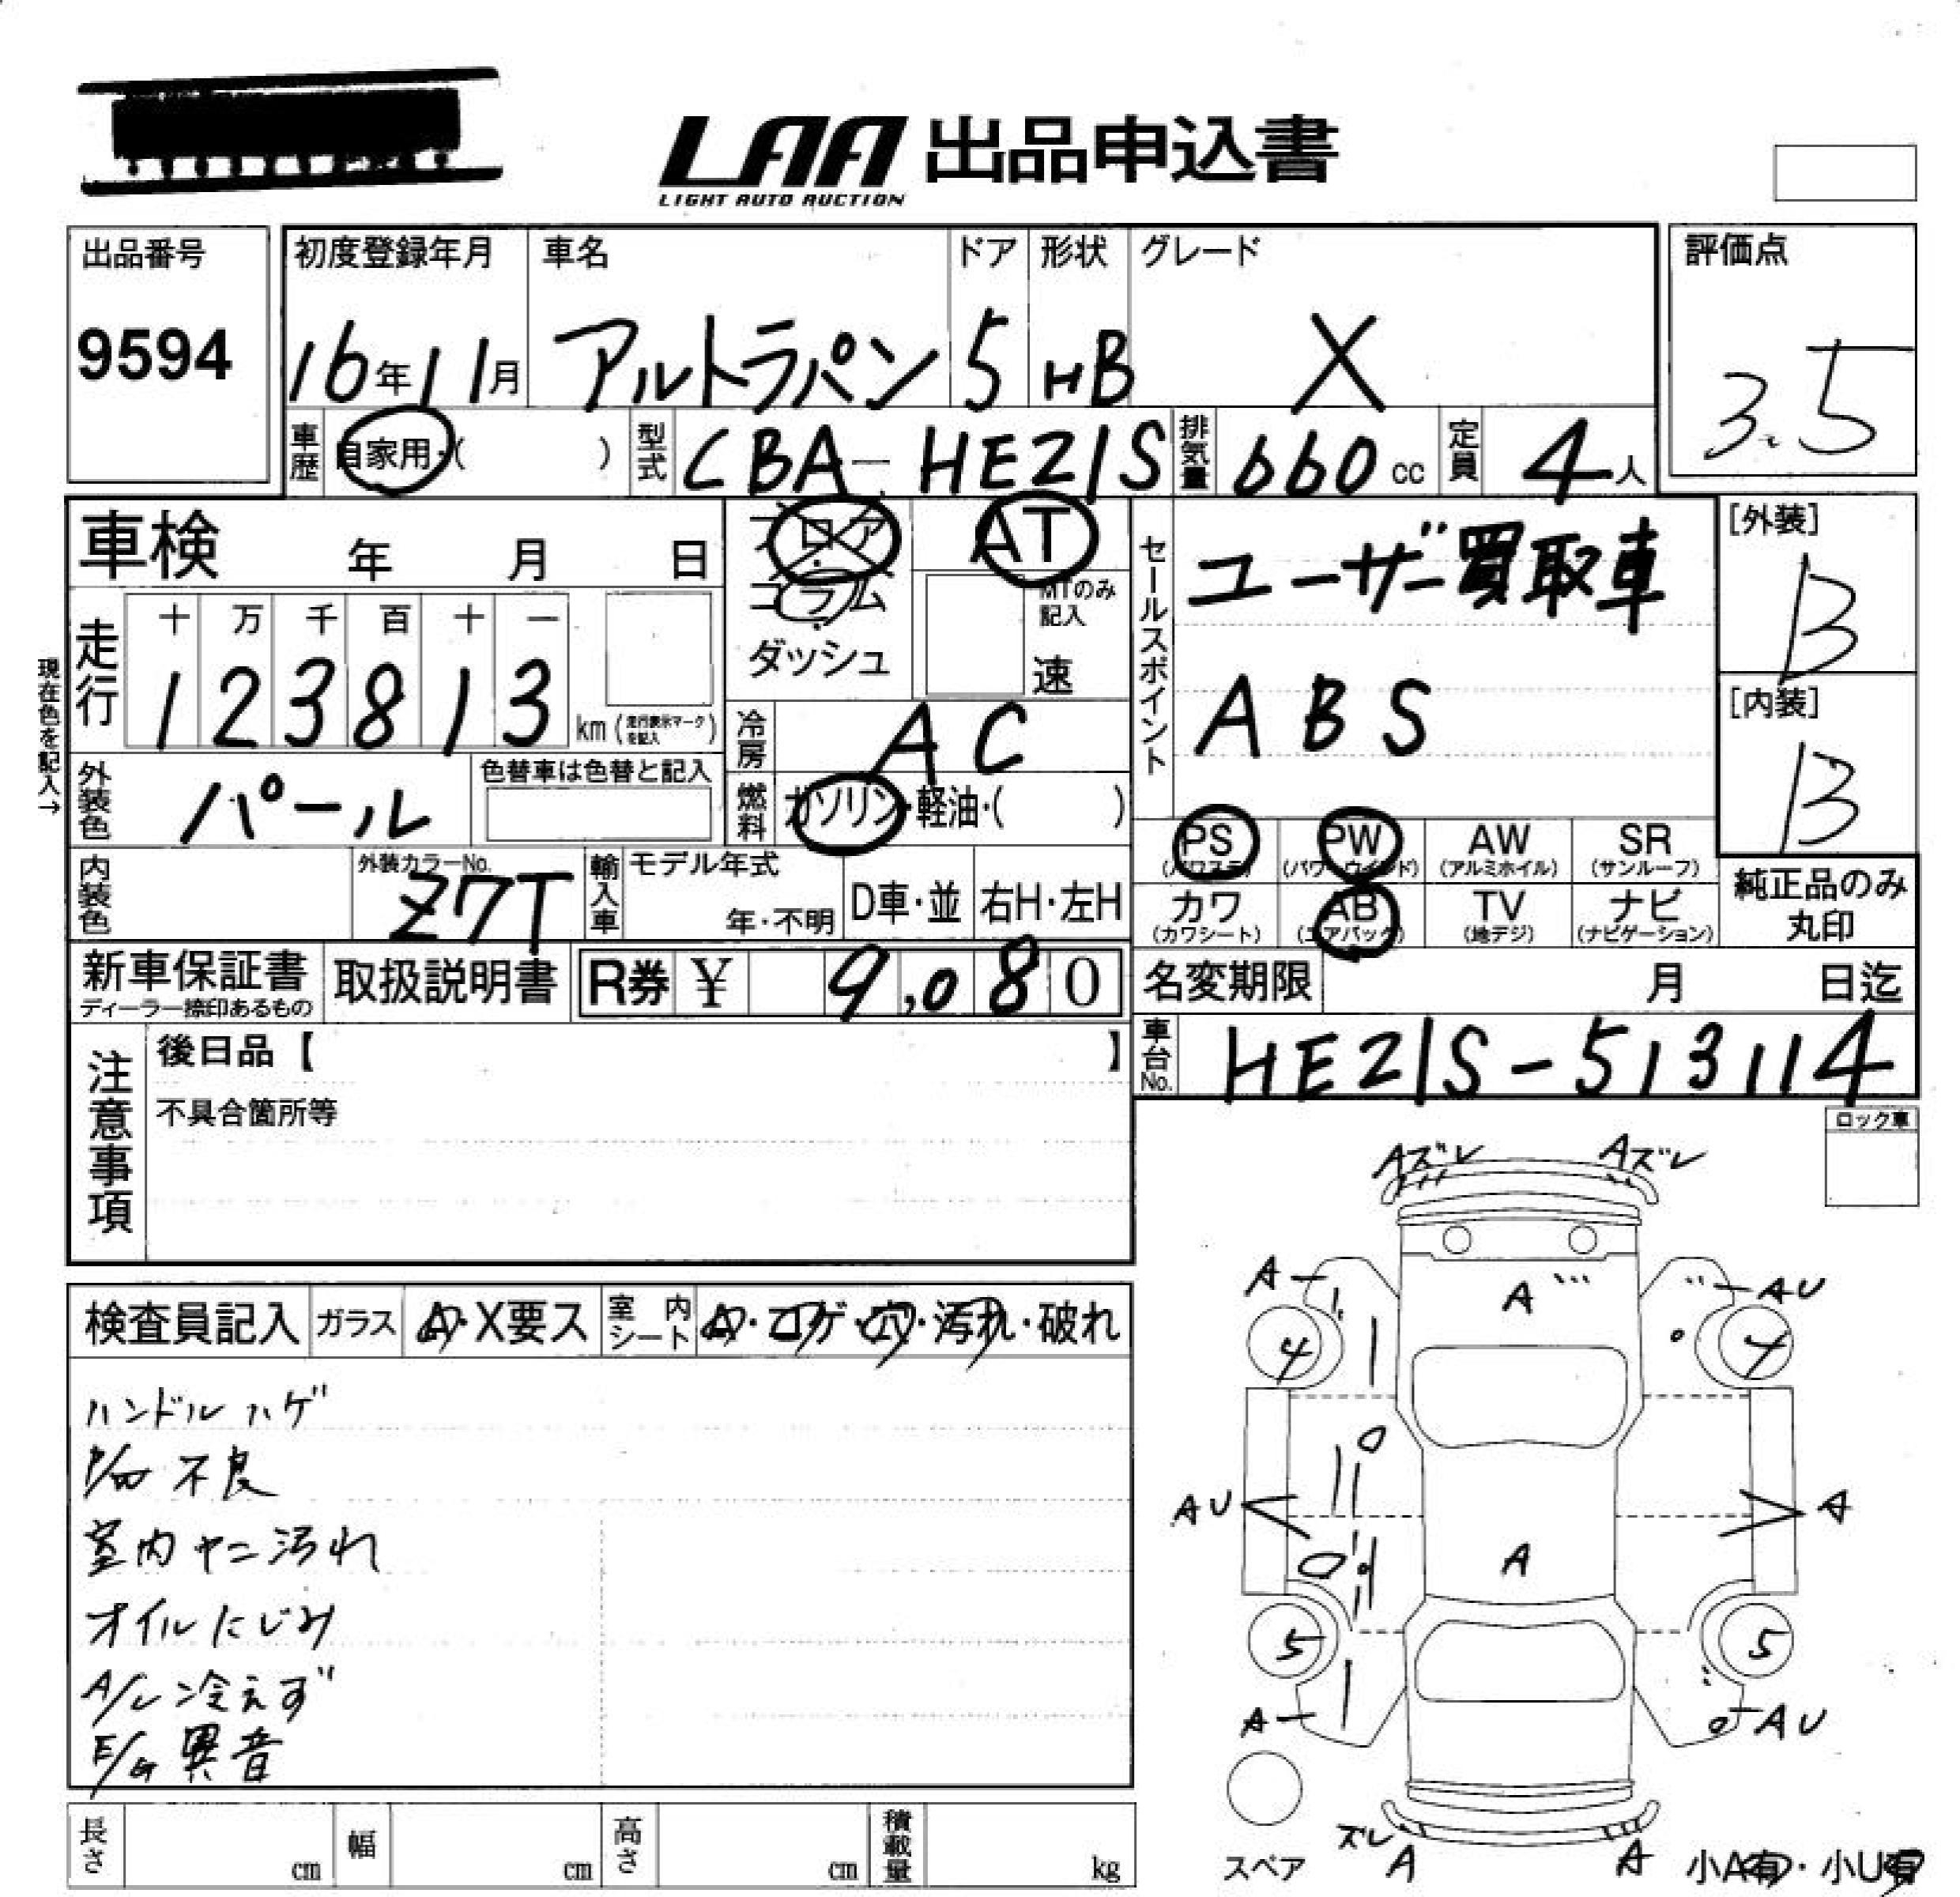 LAA 出品申込書
LIGHT AUTO AUCTION
出品番号
9594
初度登録年月
16年11月
車名
アルトラパン
ドア
5
形状
HB
グレード
X
評価点
3.5
車歴 自家用・( )
型式 CBA-HE21S
排気量 660cc
定員 4人
車検 年 月 日
フロア
コラム
ダッシュ
AT
MTのみ記入
速
セールスポイント
ユーザー買取車
ABS
[外装]
B
[内装]
B
現在色を記入→
走行
十 万 千 百 十 一
1 2 3 8 1 3 km (走行表示マークを記入)
冷房 AC
外装色 パール
色替車は色替と記入
燃料 ガソリン・軽油・( )
PS (パワステ)
PW (パワーウインド)
AW (アルミホイル)
SR (サンルーフ)
内装色
外装カラーNo.
Z7T
輸入車 モデル年式
年・不明
D車・並
右H・左H
カワ (カワシート)
AB (エアバック)
TV (地デジ)
ナビ (ナビゲーション)
純正品のみ丸印
新車保証書
ディーラー捺印あるもの
取扱説明書
R券 ¥ 9,080
名変期限 月 日迄
注意事項
後日品【 】
不具合箇所等
車台No. HE21S-513114
ロック車
検査員記入
ガラス A・X要ス
室内シート A・コゲ・穴・汚れ・破れ
ハンドルハゲ
P/W 不良
室内ヤニ汚れ
オイルにじみ
A/C 冷えず
E/G 異音
Aズレ Aズレ
A A AU
4 4
AU A
A
5 5
A AU
スペア
ズレ A A
小A有・小U有
長さ cm
幅 cm
高さ cm
積載量 kg